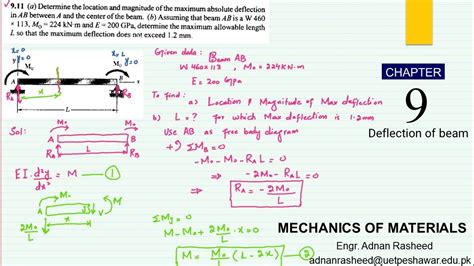 9.11 (a) Determine the location and magnitude of the maximum absolute deflection
in AB between A and the center of the beam. (b) Assuming that beam AB is a W 460
× 113, M₀ = 224 kN·m and E = 200 GPa, determine the maximum allowable length
L so that the maximum deflection does not exceed 1.2 mm.
x=0
y=0
x=L
y=0
M₀
M₀
A
B
x
RA
RB
L
Given data: Beam AB
W 460×113, M₀ = 224 KN·m
E = 200 Gpa
To find:
a) Location & Magnitude of Max deflection
b) L = ? for which Max deflection is 1.2mm
Use AB as free body diagram
+↺ ΣMB = 0
-M₀ - M₀ - RA L = 0
⇒ -2M₀ - RA L = 0
RA = -2M₀/L
Sol:
M₀
M₀
A
B
RA
L
RB
EI d²y/dx² = M — ①
M₀
A
M
x
V
2M₀/L
ΣMJ = 0
M - M₀ + 2M₀/L · x = 0
M = M₀/L (L - 2x) — ②
CHAPTER
9
Deflection of beam
MECHANICS OF MATERIALS
Engr. Adnan Rasheed
adnanrasheed@uetpeshawar.edu.pk